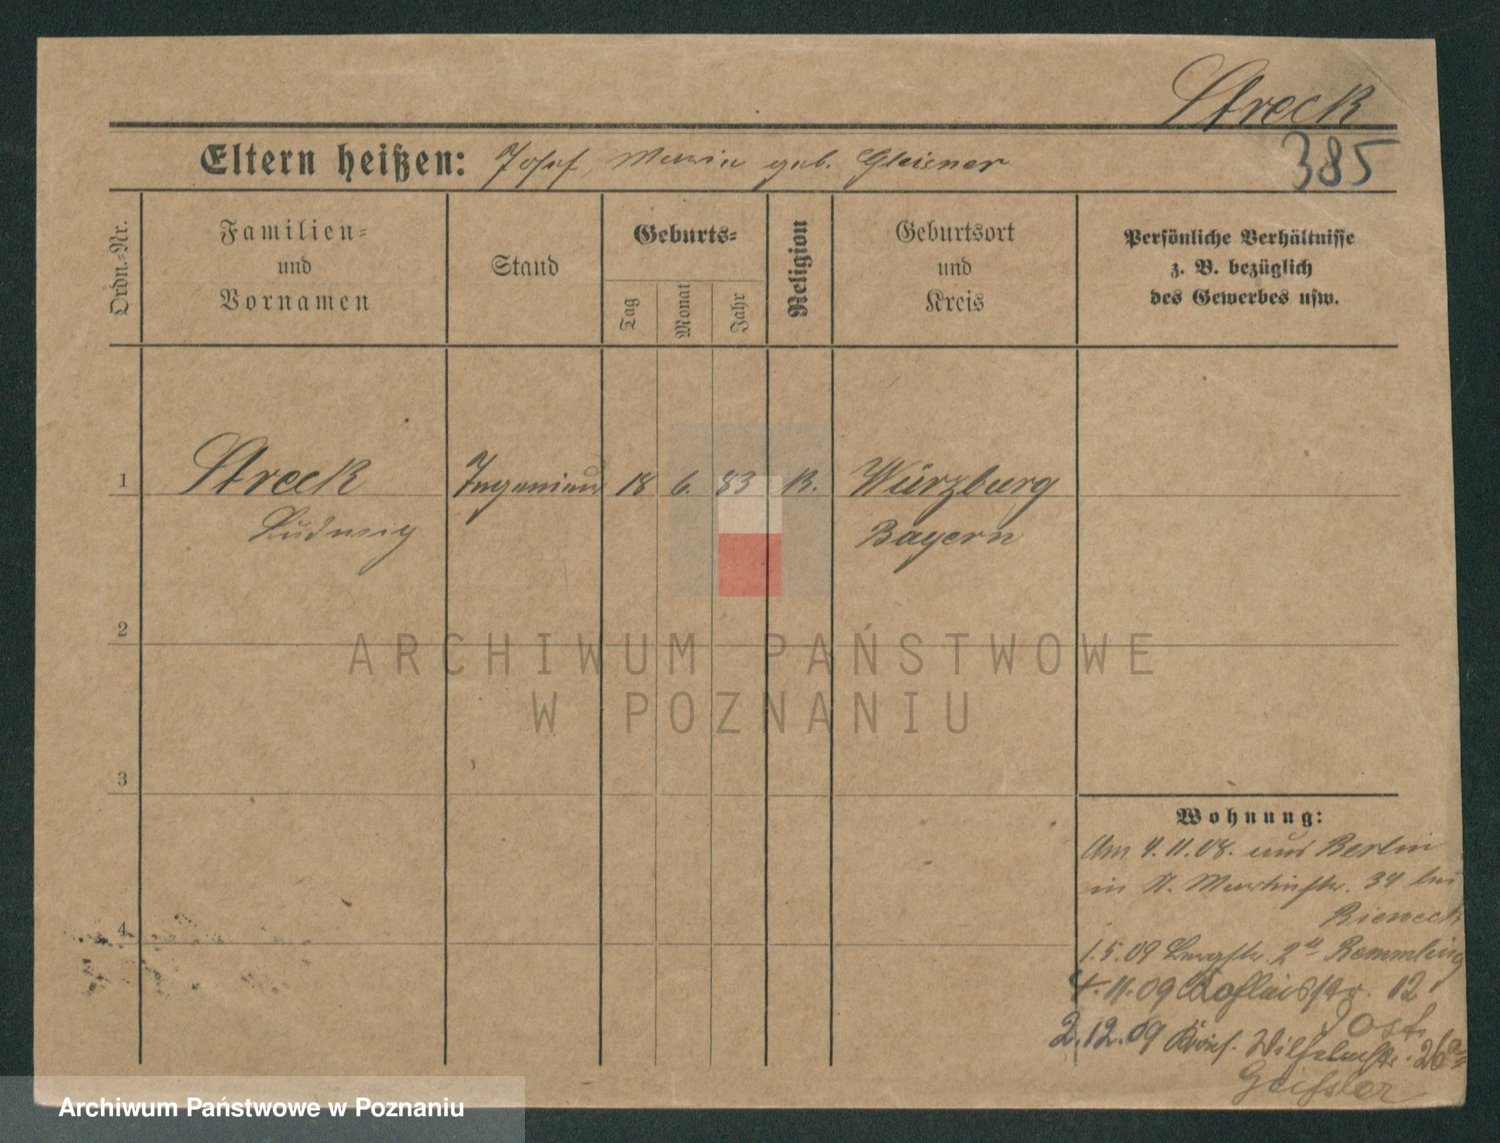 Streck
385
Eltern heißen: Josef, Maria geb. Gleisner
Ordn.=Nr.
Familien=
und
Vornamen
Stand
Geburts=
Tag
Monat
Jahr
Religion
Geburtsort
und
Kreis
Persönliche Verhältnisse
z. B. bezüglich
des Gewerbes usw.
1
Streck Ingenieur 18 6. 83 K. Würzburg
Ludwig Bayern
2
ARCHIWUM PAŃSTWOWE
W POZNANIU
3
Wohnung:
Am 4.11.08. aus Berlin
in St. Martinstr. 34 bei
Rieneck
4
1.5.09 Bergstr. 2a Remmling
4.11.09 12
Jost
2.12.09 Wilhelmstr. 26a
Geißler
Archiwum Państwowe w Poznaniu